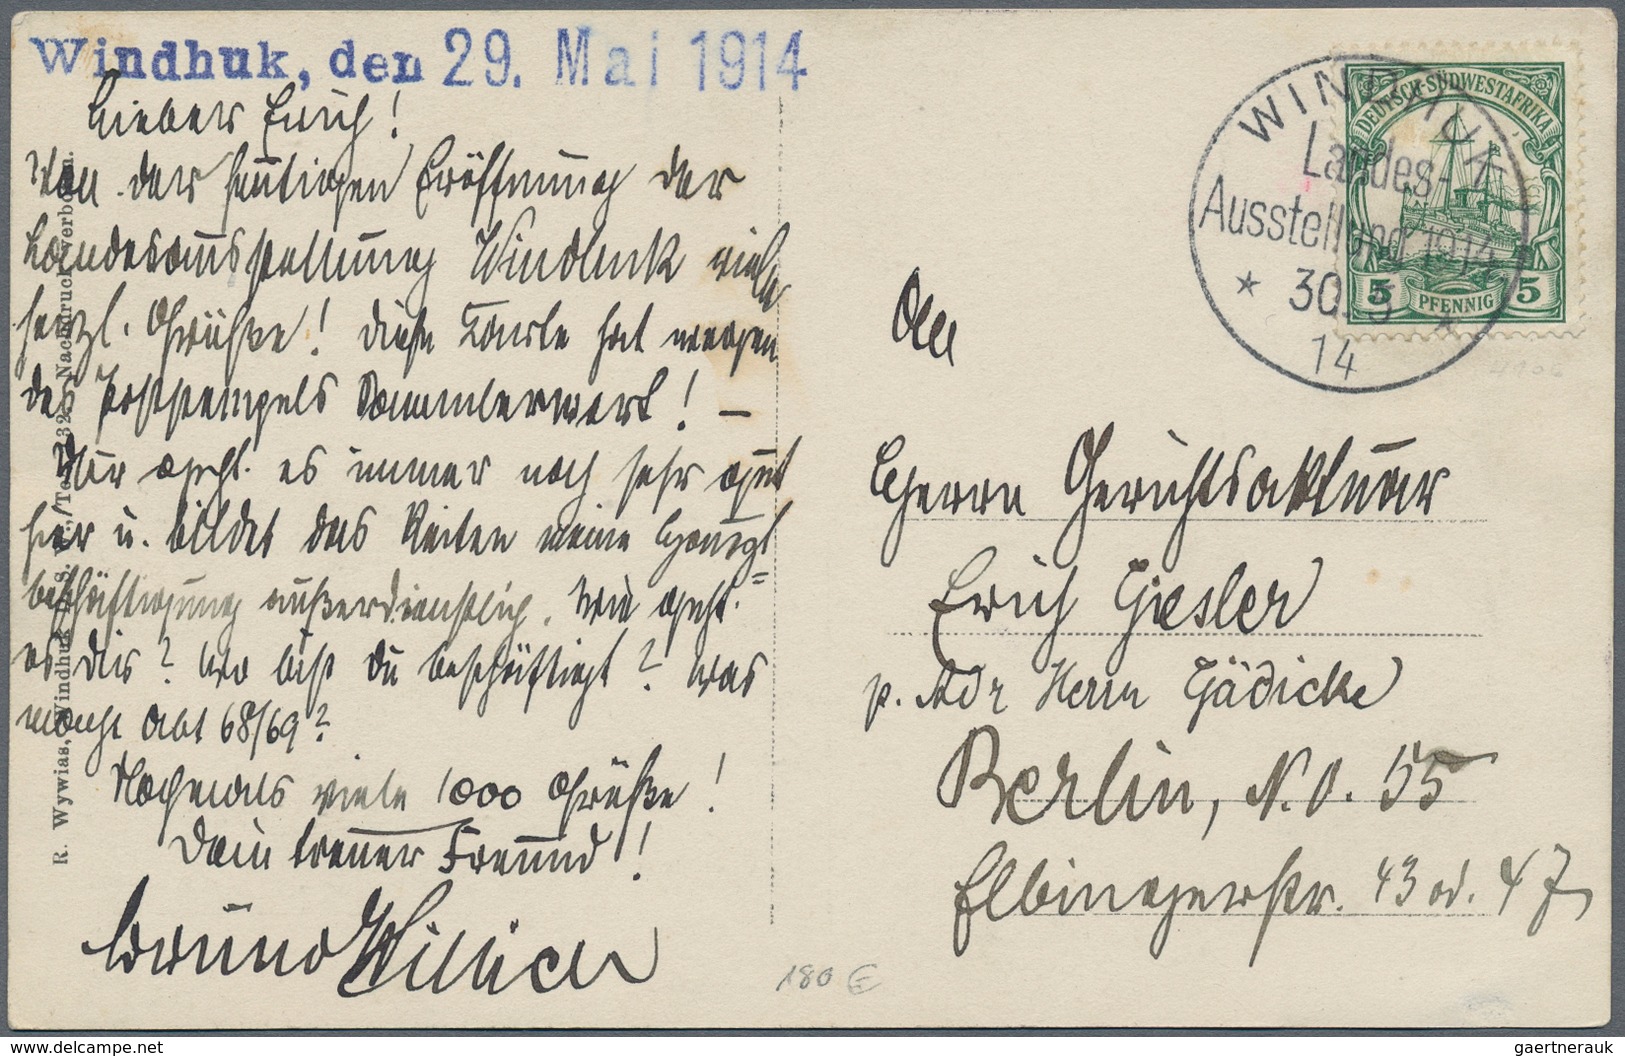 Windhuk, den 29. Mai 1914
Lieber Erich!
Von der heutigen Eröffnung der
Landesausstellung Windhuk viele
herzl. Grüße! Diese Karte hat wegen
des Poststempels Sammlerwert! —
Mir geht es immer noch sehr gut
hier u. bildet das Reiten meine Haupt
beschäftigung außerdienstlich. Wie geht
es Dir? Wo bist Du beschäftigt? Was
macht Abt 68/69?
Nochmals viele 1000 Grüße!
Dein treuer Freund!
Bruno
R. Wywias, Windhuk Nachdruck verboten.
WINDHUK
Landes-
Ausstellung 1914
* 30.5 *
14
DEUTSCH-SÜDWESTAFRIKA
5 PFENNIG 5
An
Herrn Gerichtsaktuar
Erich Giesler
p. Adr Herrn Gädicke
Berlin, N.O. 55
Elbingerstr. 43 od. 47
180 €
gaertnerauk